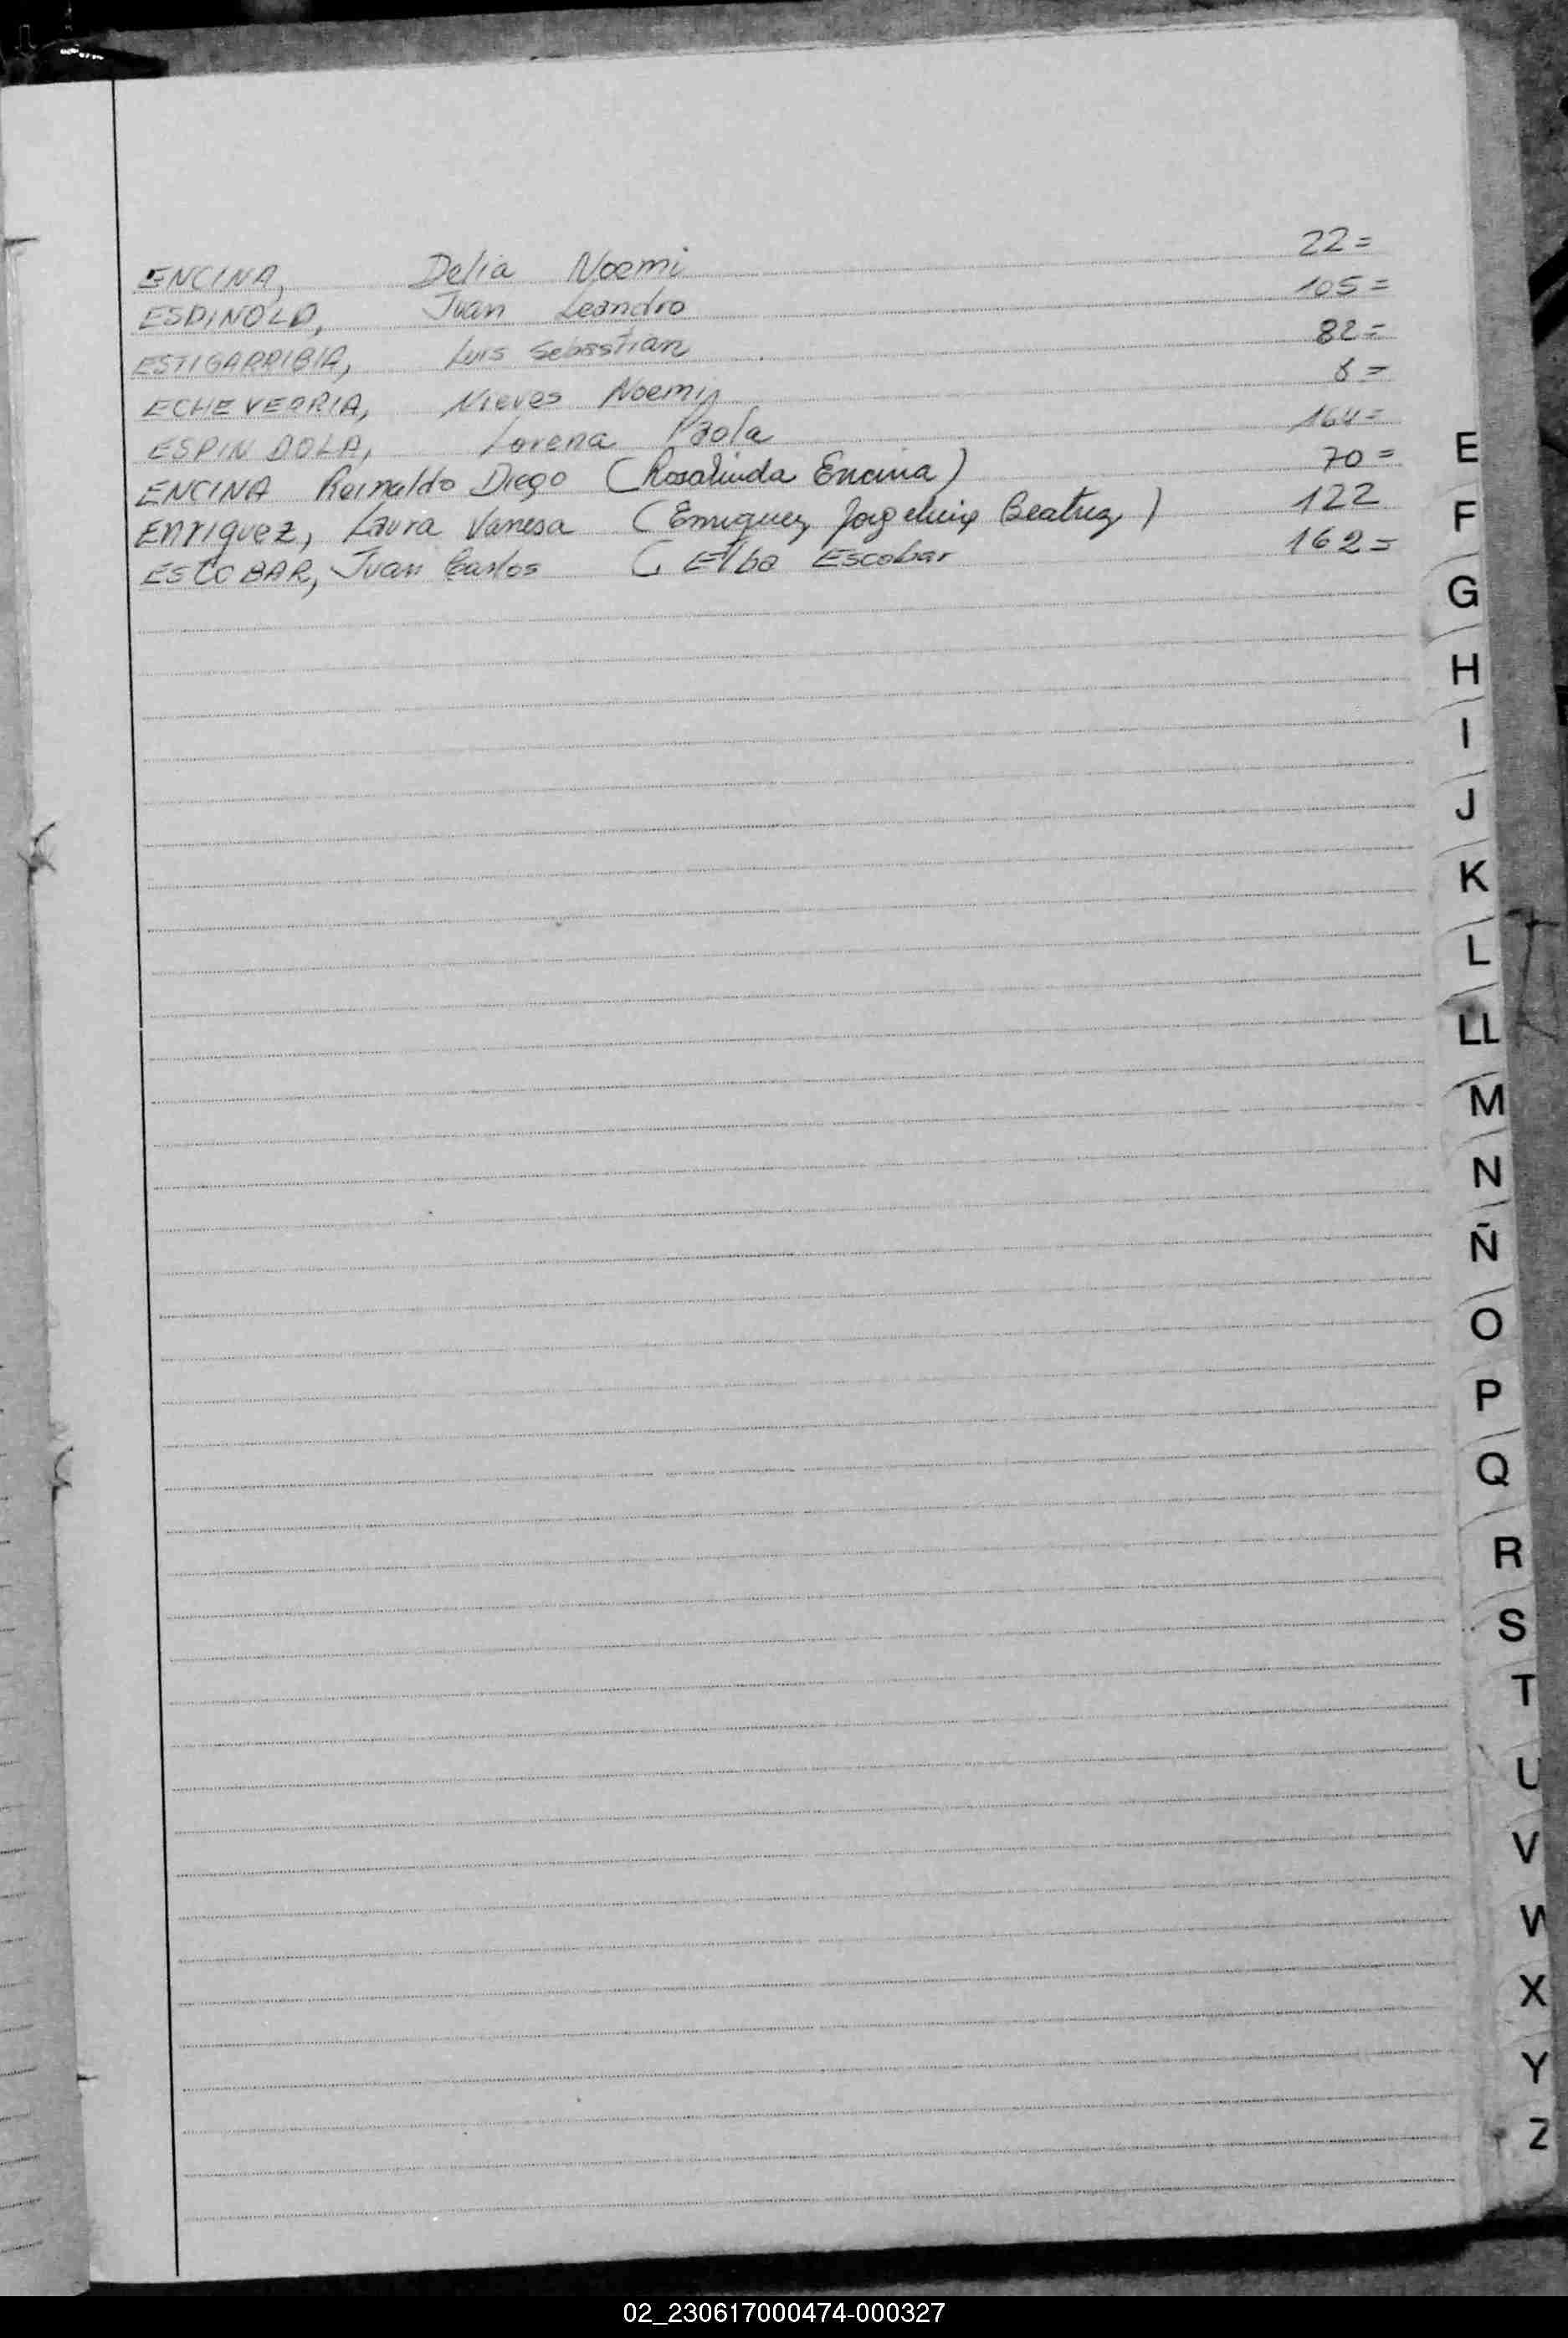 ENCINA, Delia Noemi 22=
ESPINOLA, Juan Leandro 105=
ESTIGARRIBIA, Luis Sebastian 82=
ECHEVERRIA, Nieves Noemi 8=
ESPINDOLA, Lorena Paola 164=
ENCINA Reinaldo Diego (Rosalinda Encina) 70=
Enriquez, Laura Vanesa (Enriquez, Jorgelina Beatriz) 122
ESCOBAR, Juan Carlos ( Elba Escobar 162=
E
F
G
H
I
J
K
L
LL
M
N
Ñ
O
P
Q
R
S
T
U
V
W
X
Y
Z
02_230617000474-000327